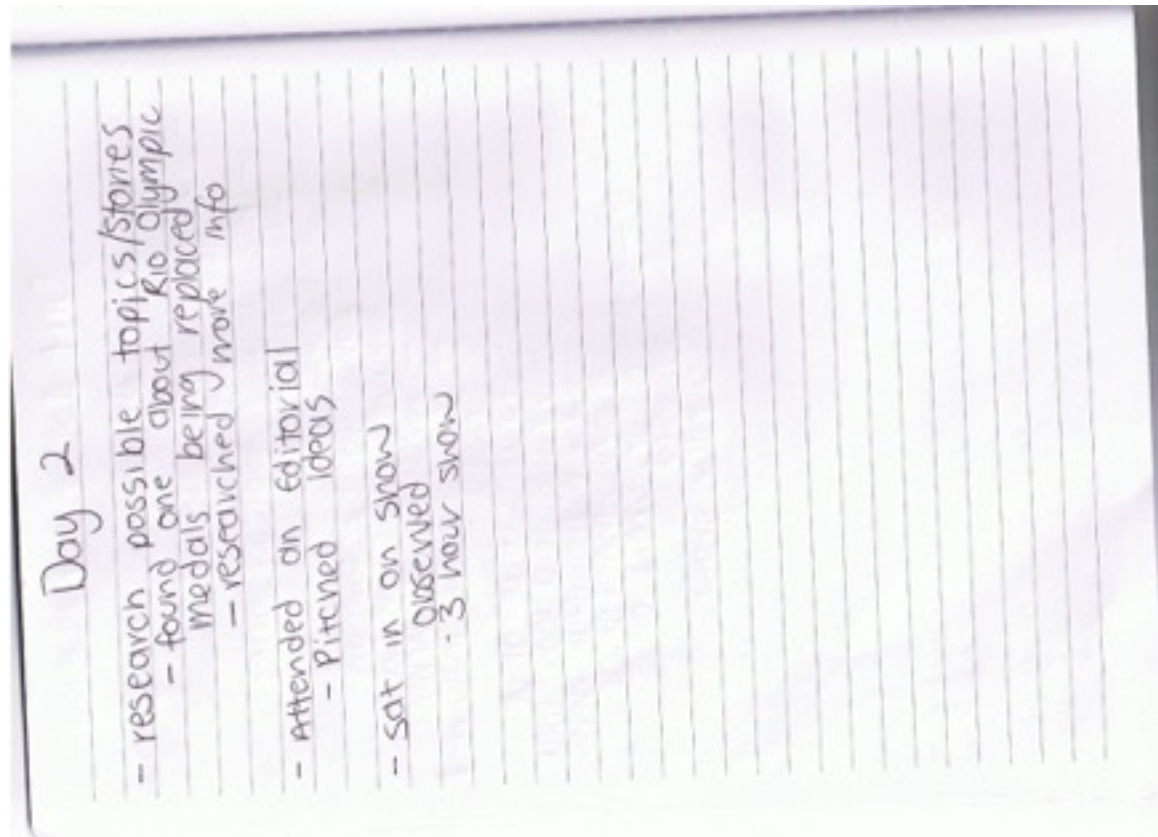 Day 2
- research possible topics/stories
- found one about Rio Olympic
medals being replaced
- researched more info
- Attended an Editorial
- Pitched ideas
- sat in on show
observed
- 3 hour show